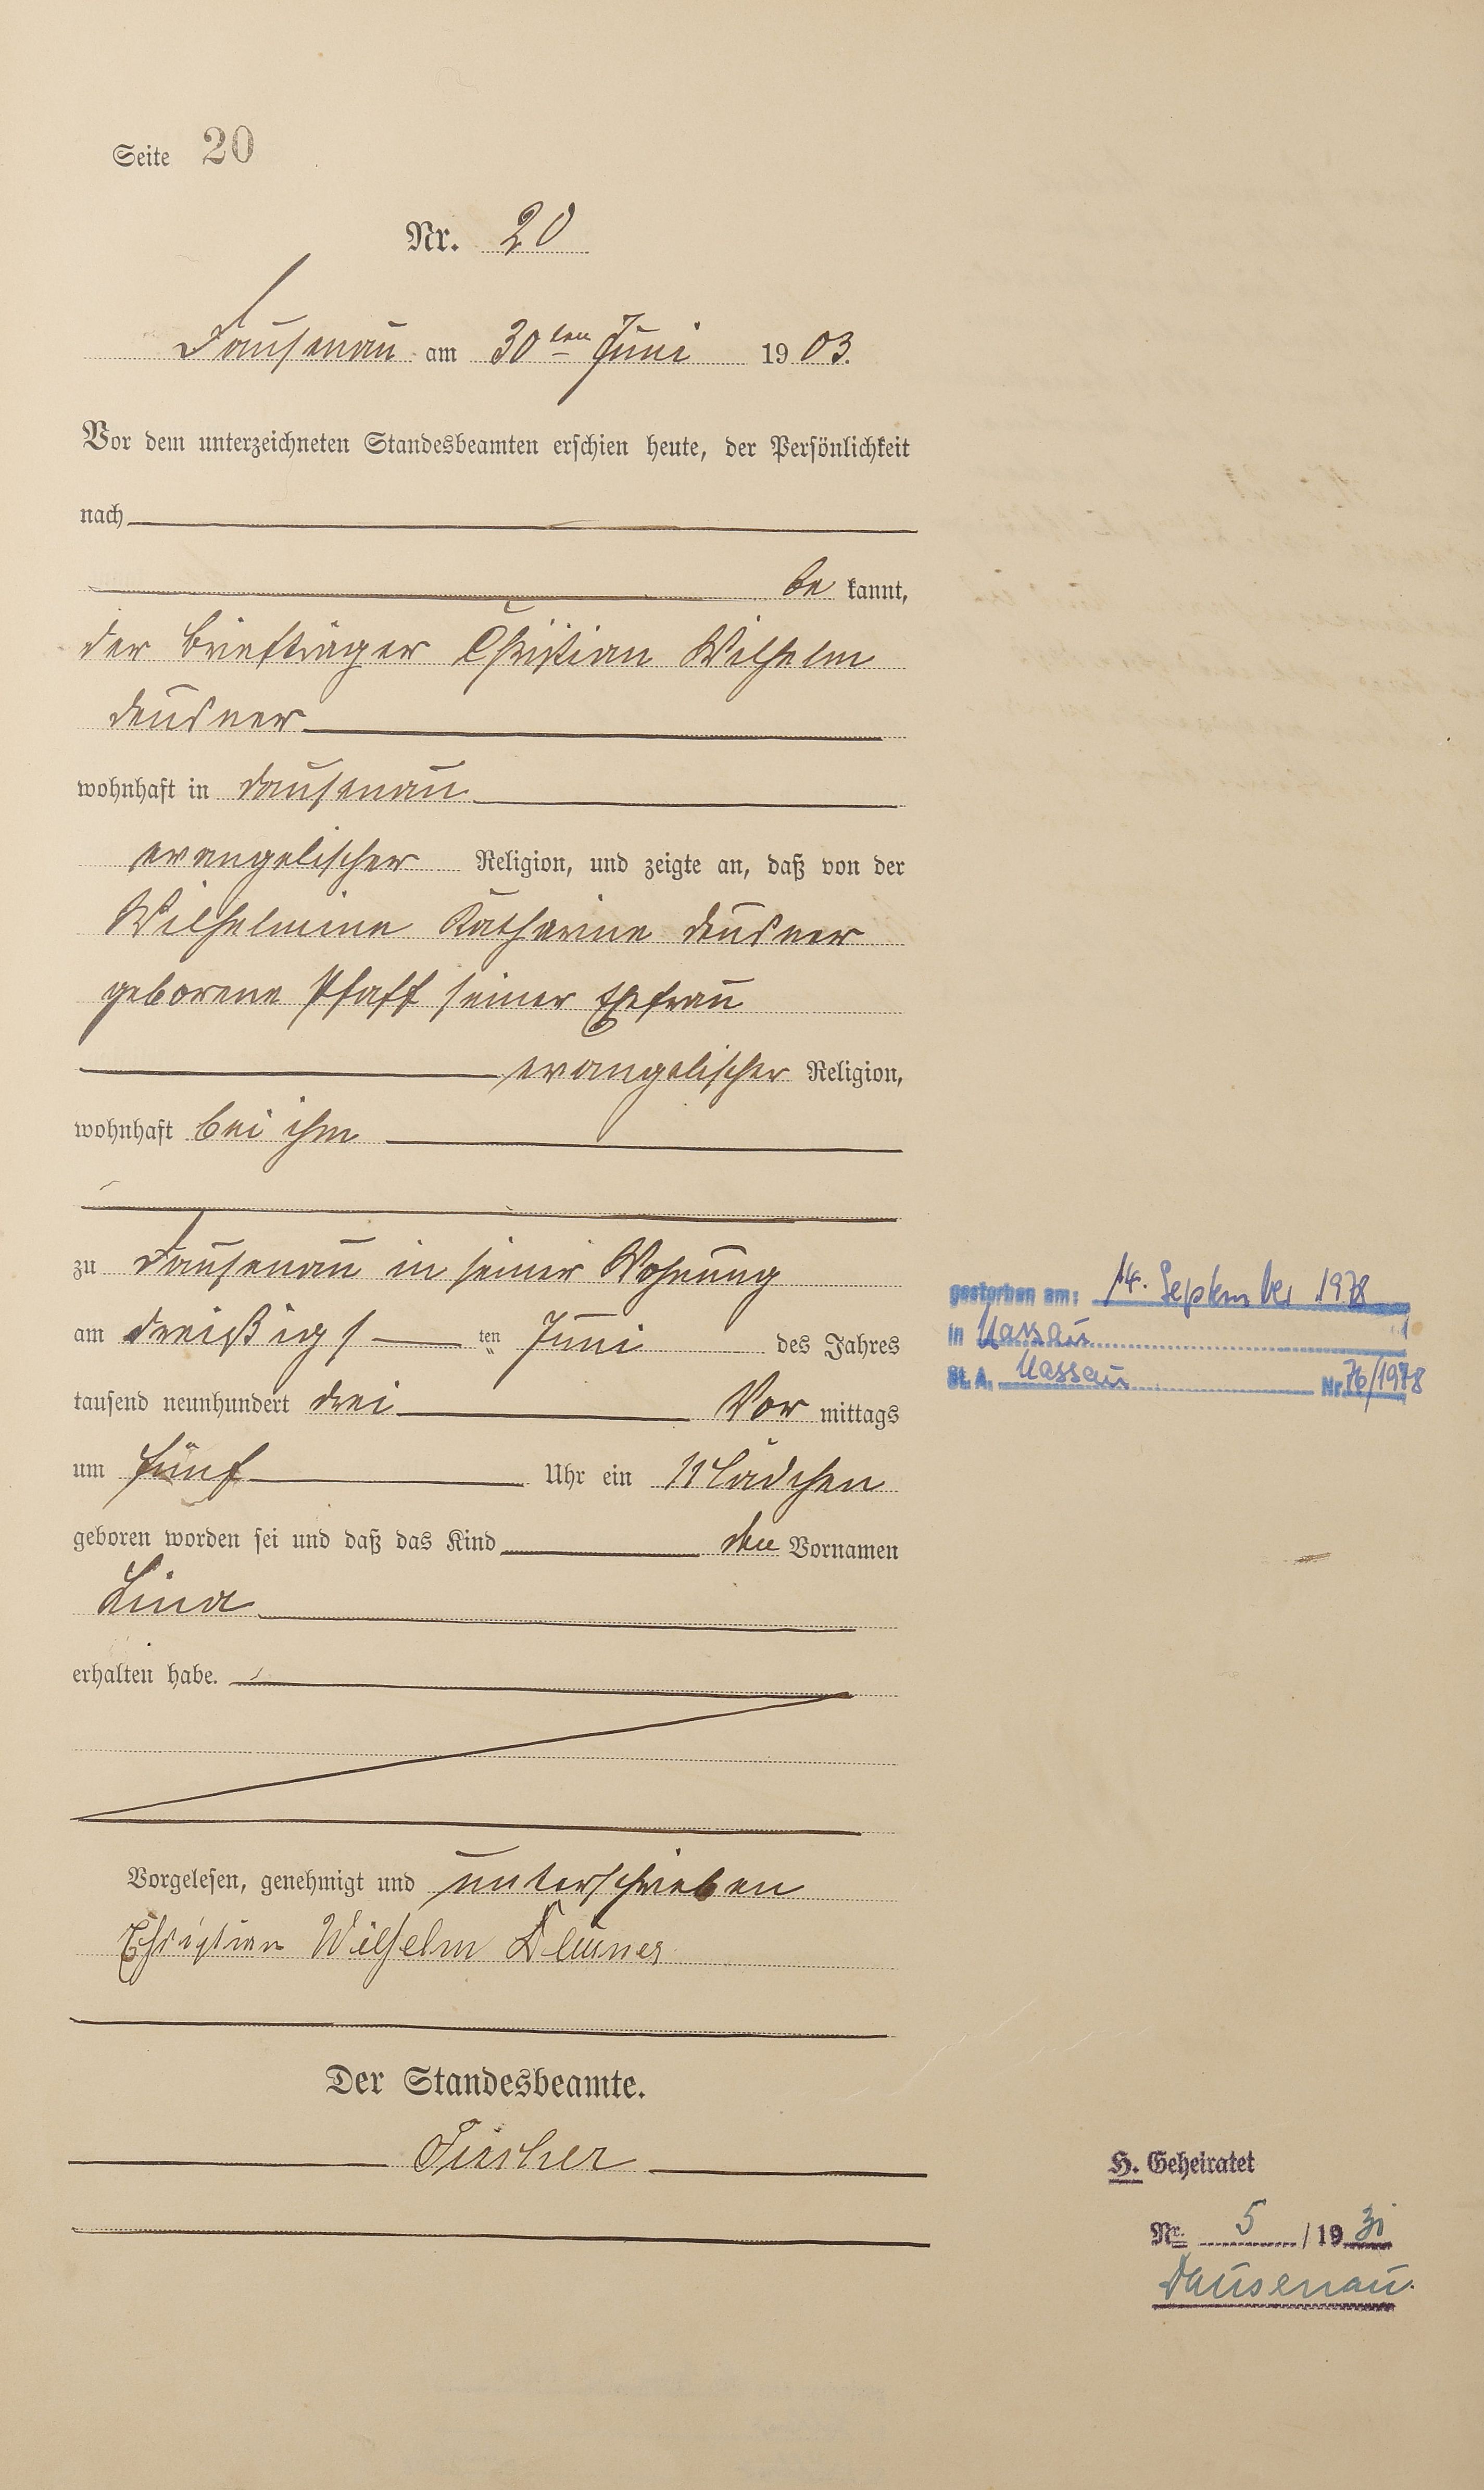 Seite 20
Nr. 20
Dausenau am 30ten Juni 1903.
Vor dem unterzeichneten Standesbeamten erschien heute, der Persönlichkeit
nach
be kannt,
der Briefträger Christian Wilhelm
Deusner
wohnhaft in Dausenau
evangelischer Religion, und zeigte an, daß von der
Wilhelmine Katharine Deusner
geborene Pfaff seiner Ehefrau
evangelischer Religion,
wohnhaft bei ihm
zu Dausenau in seiner Wohnung
am dreißigs ten Juni des Jahres
tausend neunhundert drei Vor mittags
um fünf Uhr ein Mädchen
geboren worden sei und daß das Kind den Vornamen
Lina
erhalten habe.
Vorgelesen, genehmigt und unterschrieben
Christian Wilhelm Deusner
Der Standesbeamte.
Fischer
gestorben am: 14. September 1978
in Nassau
St. A. Nassau Nr. 76/1978
H. Geheiratet
Nr. 5 / 19 31
Dausenau.